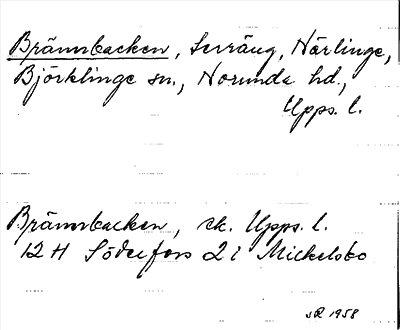 Brännbacken, terräng, Närlinge,
Björklinge sn., Norunda hd.,
Upps. l.
Brännbacken, sk. Upps. l.
12 H Söderfors 2 i Mickelsbo
1958